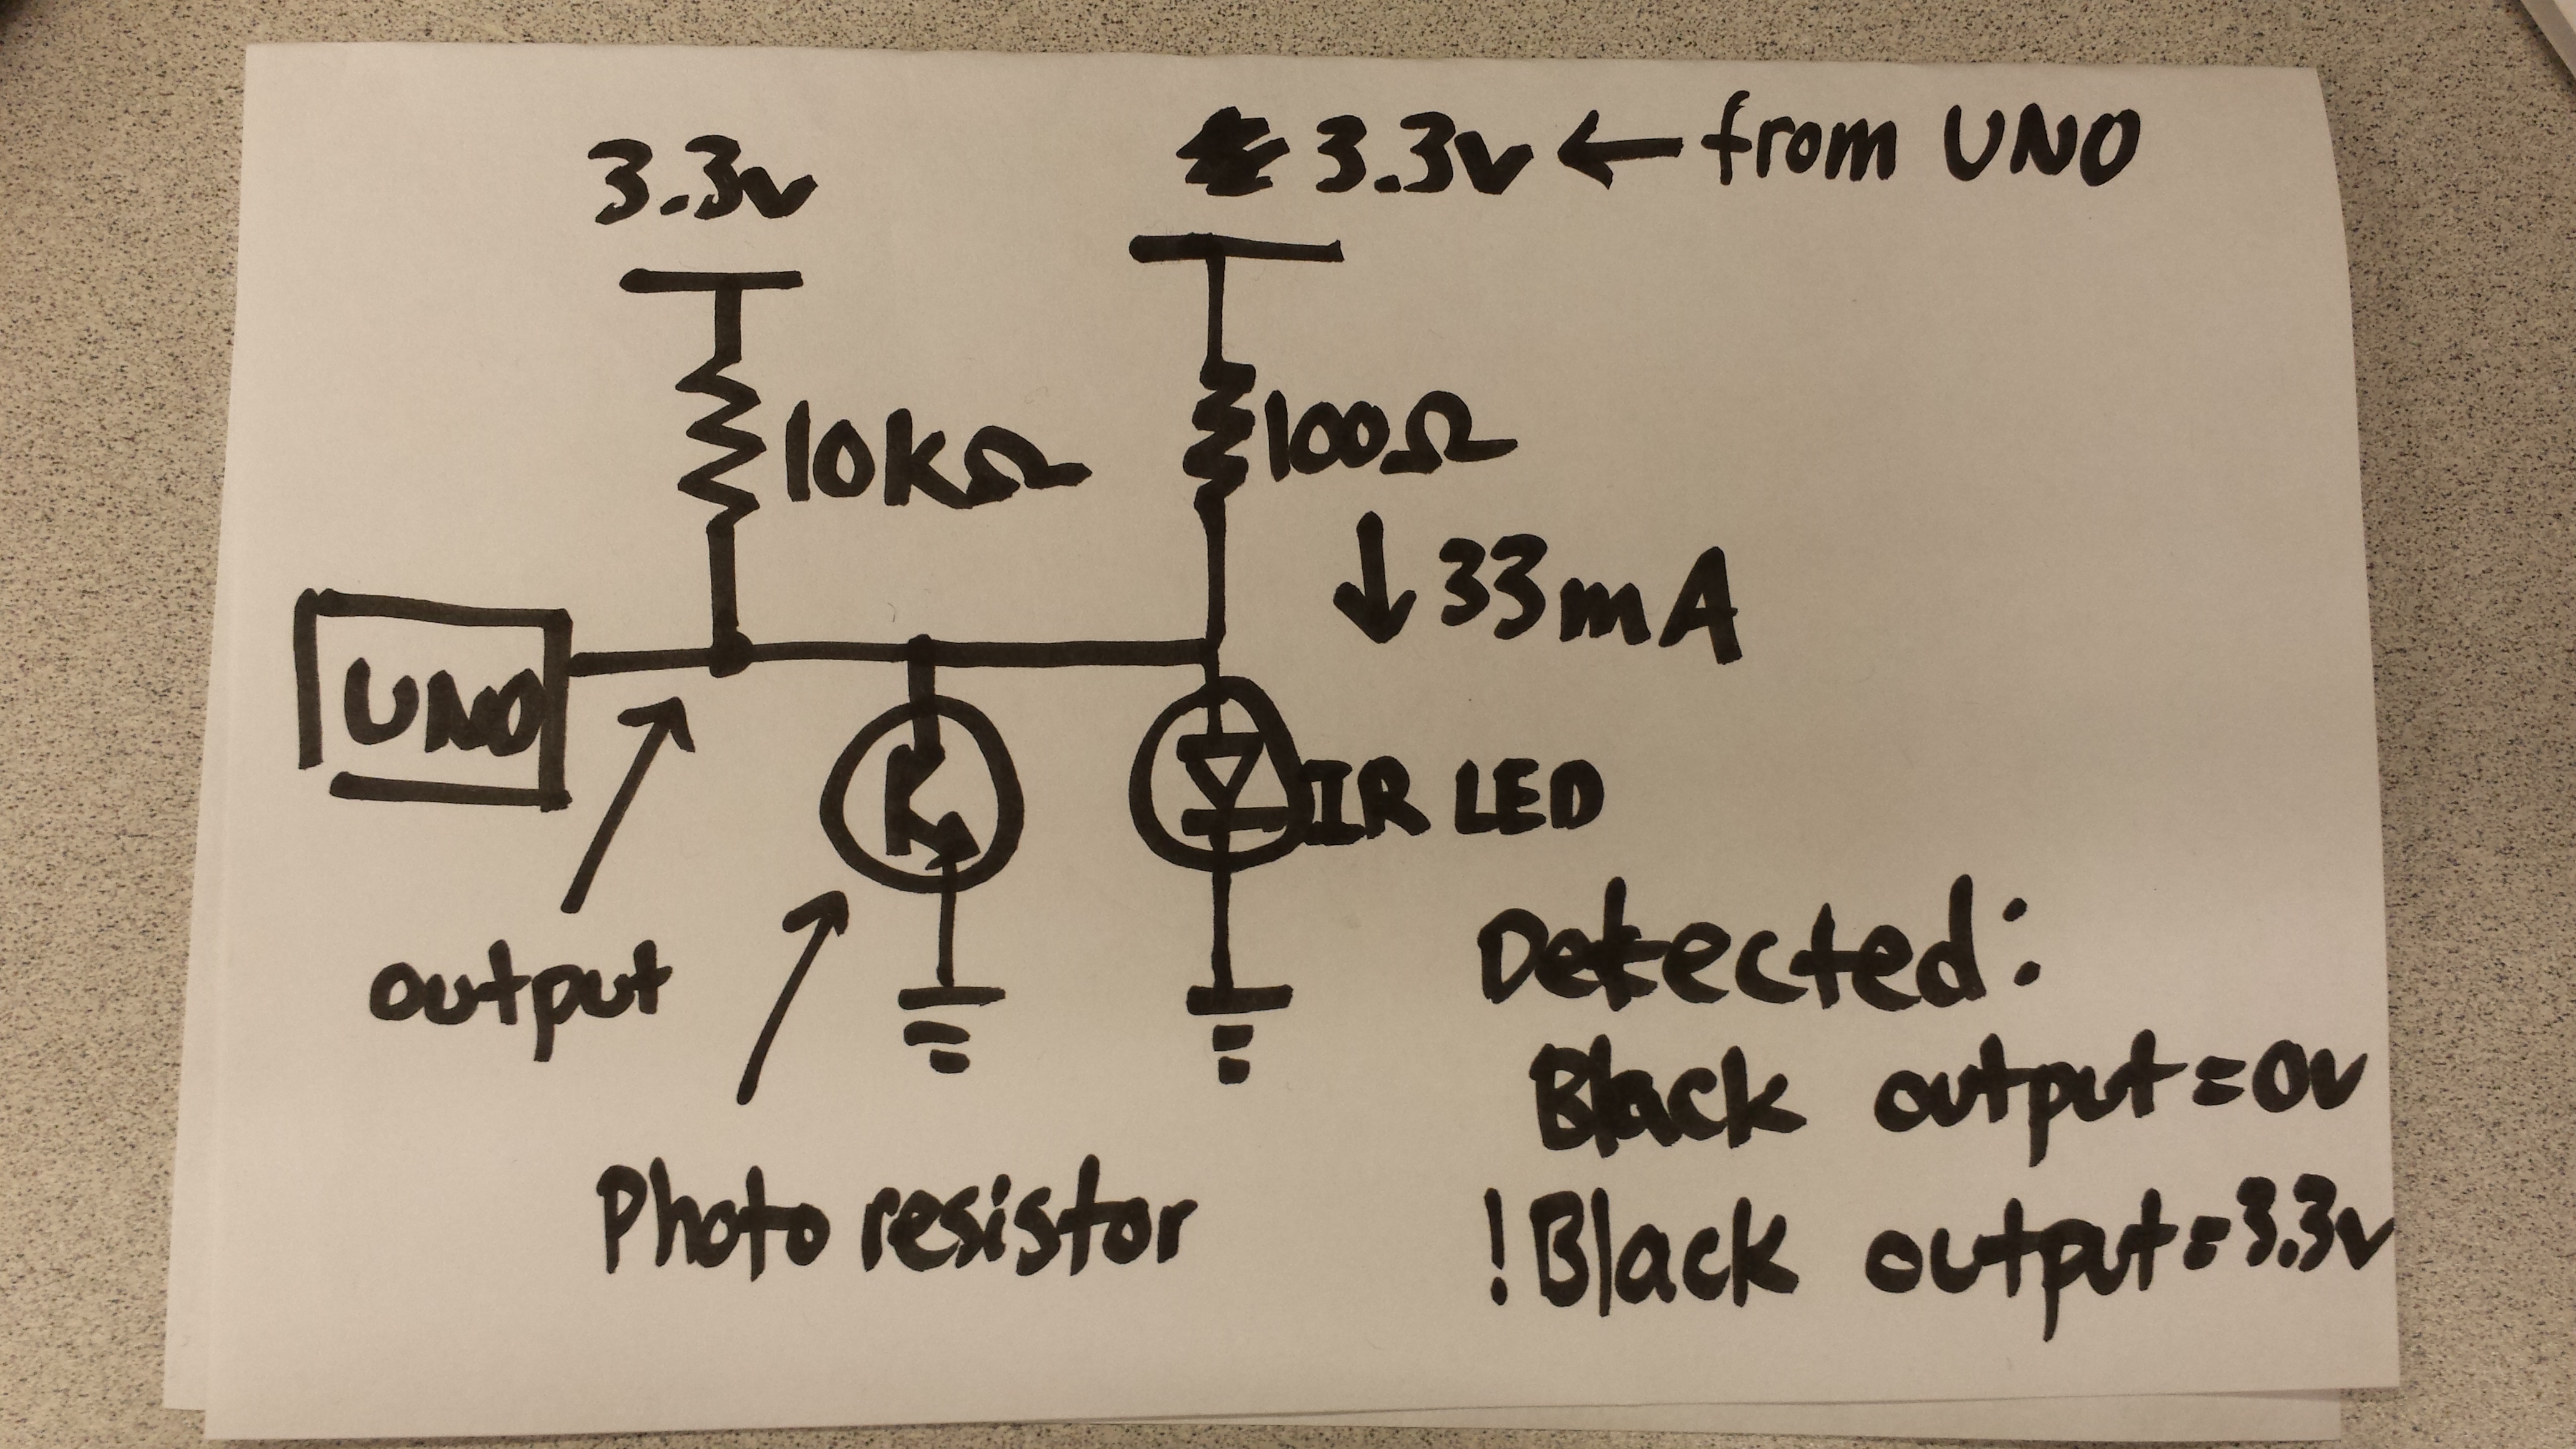 3.3v
3.3v ← from UNO
10kΩ
100Ω
↓ 33mA
UNO
IR LED
output
Photo resistor
Detected:
Black output=0v
!Black output=3.3v